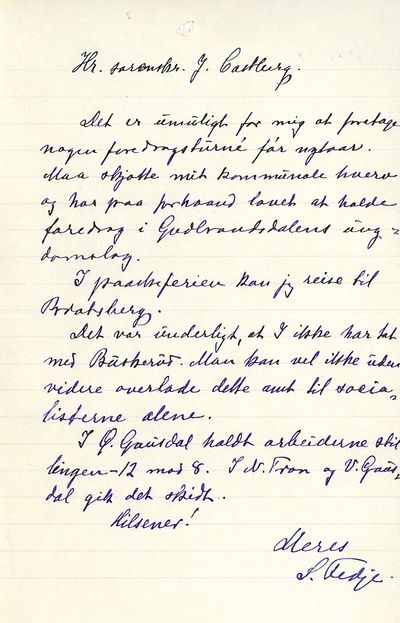 Hr. sorenskr. J. Castberg.
Det er umuligt for mig at foretage
nogen foredragsturné før nytaar.
Maa skjøtte mit kommunale hverv
og har paa forhaand lovet at holde
foredrag i Gudbrandsdalens ung-
domslag.
I paaskeferien kan jeg reise til
Bratsberg.
Det var underligt, at I ikke har tat
med Buskerud. Man kan vel ikke uden
videre overlade dette amt til socia-
listerne alene.
I Ø. Gausdal holdt arbeiderne stil-
lingen – 12 mod 8. I N. Fron og V. Gaus-
dal gik det skidt.
Hilsener!
Deres
S. Fedje.